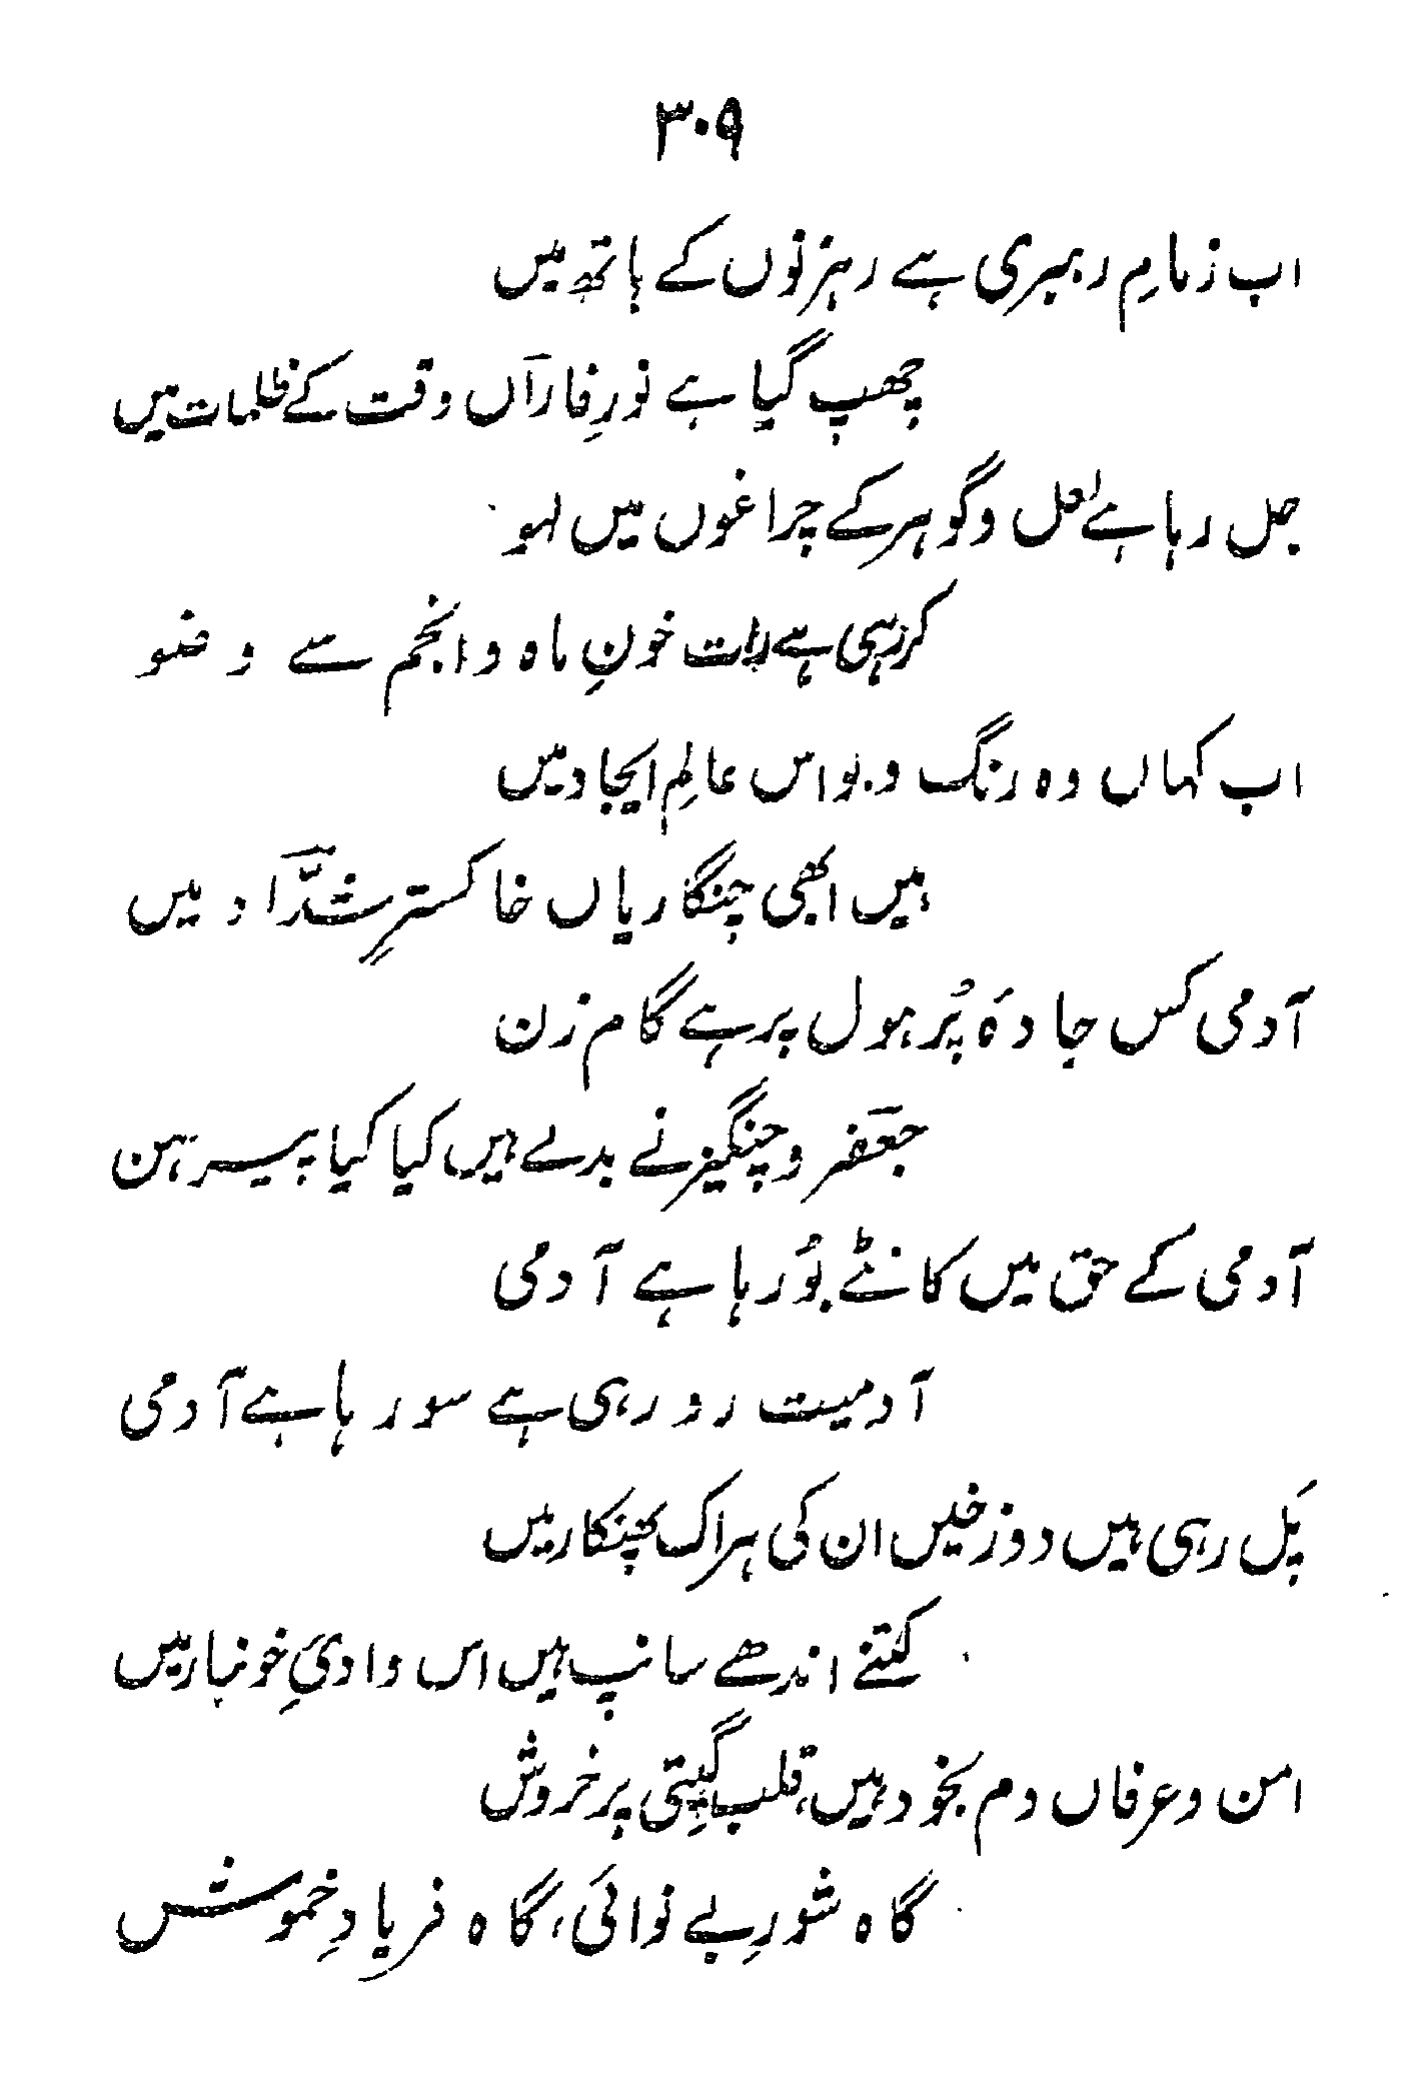 ۳۰۹
اب زمامِ رہبری ہے رہزنوں کے ہاتھ میں
چھپ گیا ہے نورِ فاراں وقت کے ظلمات میں
جل رہا ہے لعل و گوہر کے چراغوں میں لہو
کر رہی ہے رات خونِ ماہ و انجم سے وضو
اب کہاں وہ رنگ و بو اس عالمِ ایجاد میں
ہیں ابھی چنگاریاں خاکسترِ شدّاد میں
آدمی کس جادہَ پُر ہول پر ہے گام زن
جعفر و چنگیز نے بدلے ہیں کیا کیا پیرہن
آدمی کے حق میں کانٹے بُو رہا ہے آدمی
آدمیت رو رہی ہے سو رہا ہے آدمی
پَل رہی ہیں دوزخیں ان کی ہر اک پھنکار میں
کتنے اندھے سانپ ہیں اس وادیِٔ خونبار میں
امن و عرفاں دم بخود ہیں، قلبِ گیتی پر خروش
گاہ شورِ بے نوائی، گاہ فریادِ خموش